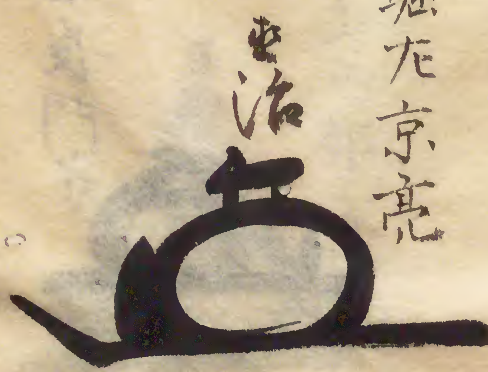 堀左京亮
直治